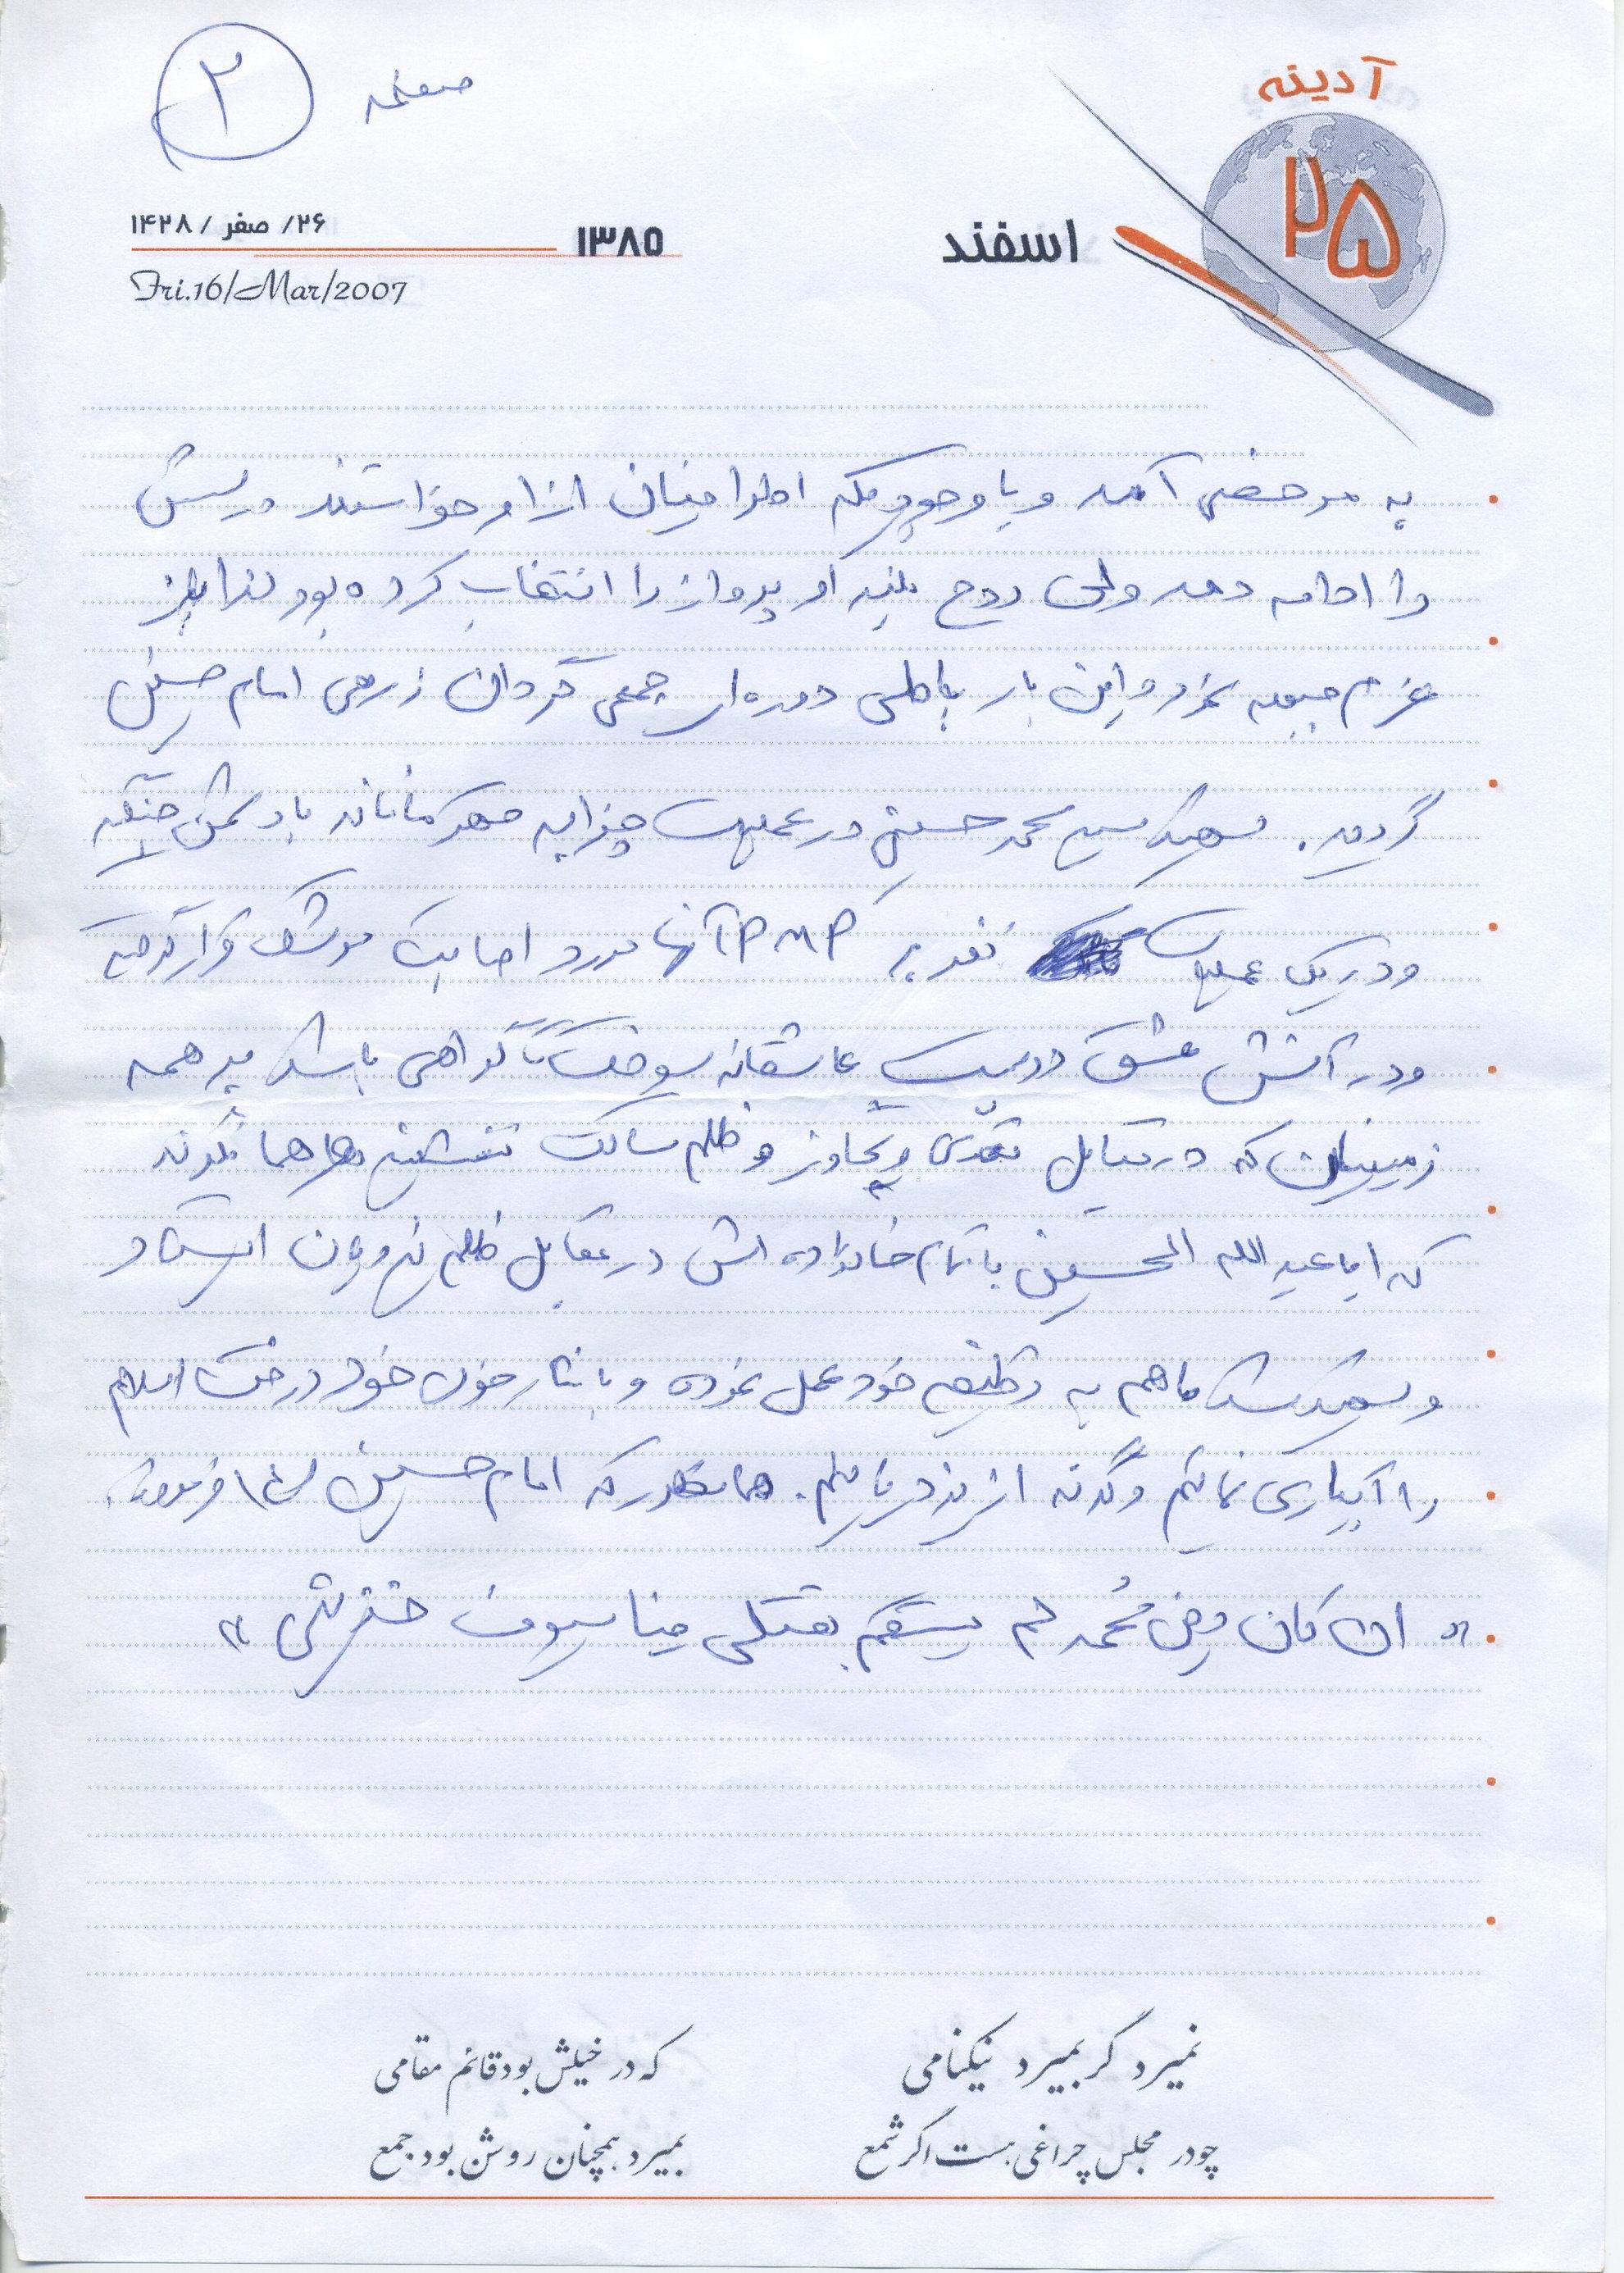 صفحه ۲
آدینه
۲۵
اسفند
۱۳۸۵
۲۶/ صفر / ۱۴۲۸
Fri.16/Mar/2007
به مرخصی آمد و با وجودیکه اطرافیان از او خواستند درسش
را ادامه دهد ولی روح بلند او پرواز را انتخاب کرده بود لذا باز
عزم جبهه نمود و این بار با طی دوره ای جمعی گردان زرهی امام حسین
گردید. شهید سید محمد حسینی در عملیات چزابه قهرمانانه با دشمن جنگید
و در یک عملیات نفربر PMP آنها مورد اصابت موشک قرار گرفته
و در آتش عشق دوست عاشقانه سوخت تا گواهی باشد بر همه
زمینیان که در مقابل تعدی و تجاوز و ظلم ساکت ننشینند همانگونه
که ابا عبدالله الحسین با تمام خانواده اش در مقابل ظلم ایستاد
و شهید شد ما هم به وظیفه خود عمل نموده و با نثار خون خود درخت اسلام
را آبیاری نمائیم وگرنه همانطور که امام حسین (ع) فرمودند.
« ان کان دین محمد لم یستقم بقتلی فیا سیوف خذینی »
نمیرد گر بمیرد نیکنامی که در خیلش بود قائم مقامی
چو در مجلس چراغی هست اگر شمع بمیرد همچنان روشن بود جمع